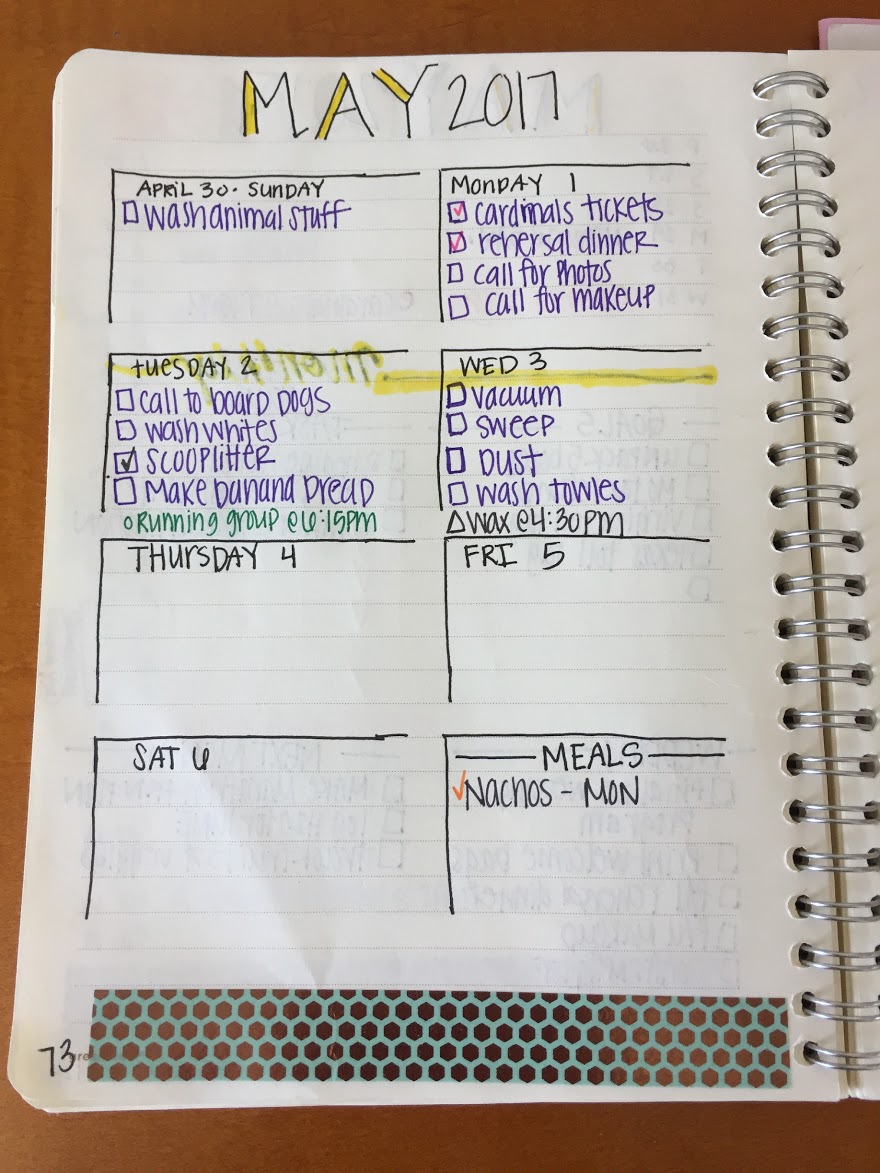 MAY 2017
APRIL 30. SUNDAY
washanimal stuff
MONDAY 1
cardinals tickets
rehersal dinner
call for photos
call for makeup
tuesday 2
call to board dogs
wash whites
scooplitter
Make banand bread
Running group @ 6:15pm
WED 3
vacuum
sweep
Dust
wash towles
wax @ 4:30pm
THURSDAY 4
FRI 5
SAT 6
MEALS
Nachos - MON
73